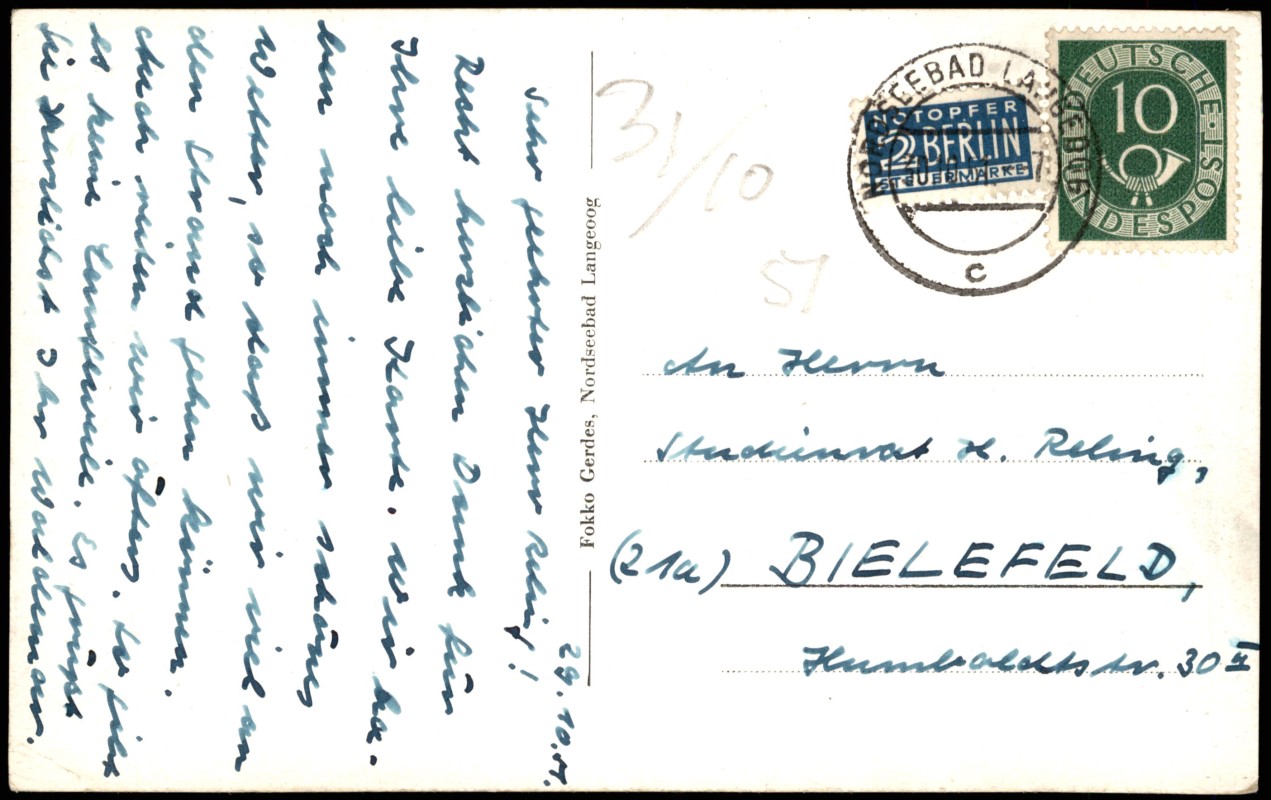 29.10.51.
Sehr geehrter Herr Reling!
Recht herzlichen Dank für
Ihre liebe Karte. Wir ha-
ben noch immer schönes
Wetter, so daß wir viel an
den Strand gehen können.
Auch reiten wir öfters. Es gibt
es keine Langeweile. Es grüßt
Sie herzlichst Ihr
Fokko Gerdes, Nordseebad Langeoog
31/10
51
NORDSEEBAD LANGEOOG
30.10.51
c
NOTOPFER
2 BERLIN
STEUERMARKE
DEUTSCHE BUNDESPOST
10
An Herrn
Studienrat H. Reling,
(21a) BIELEFELD,
Humboldtstr. 30 II